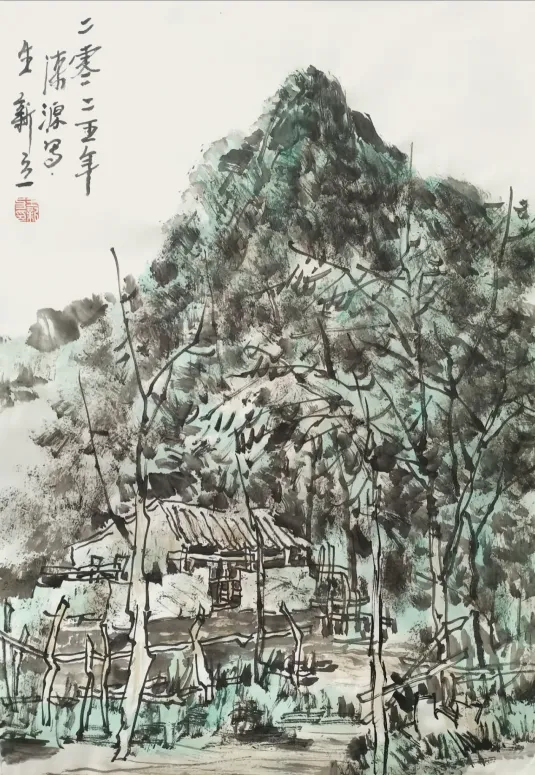 二零二五年
涞源写
生新立